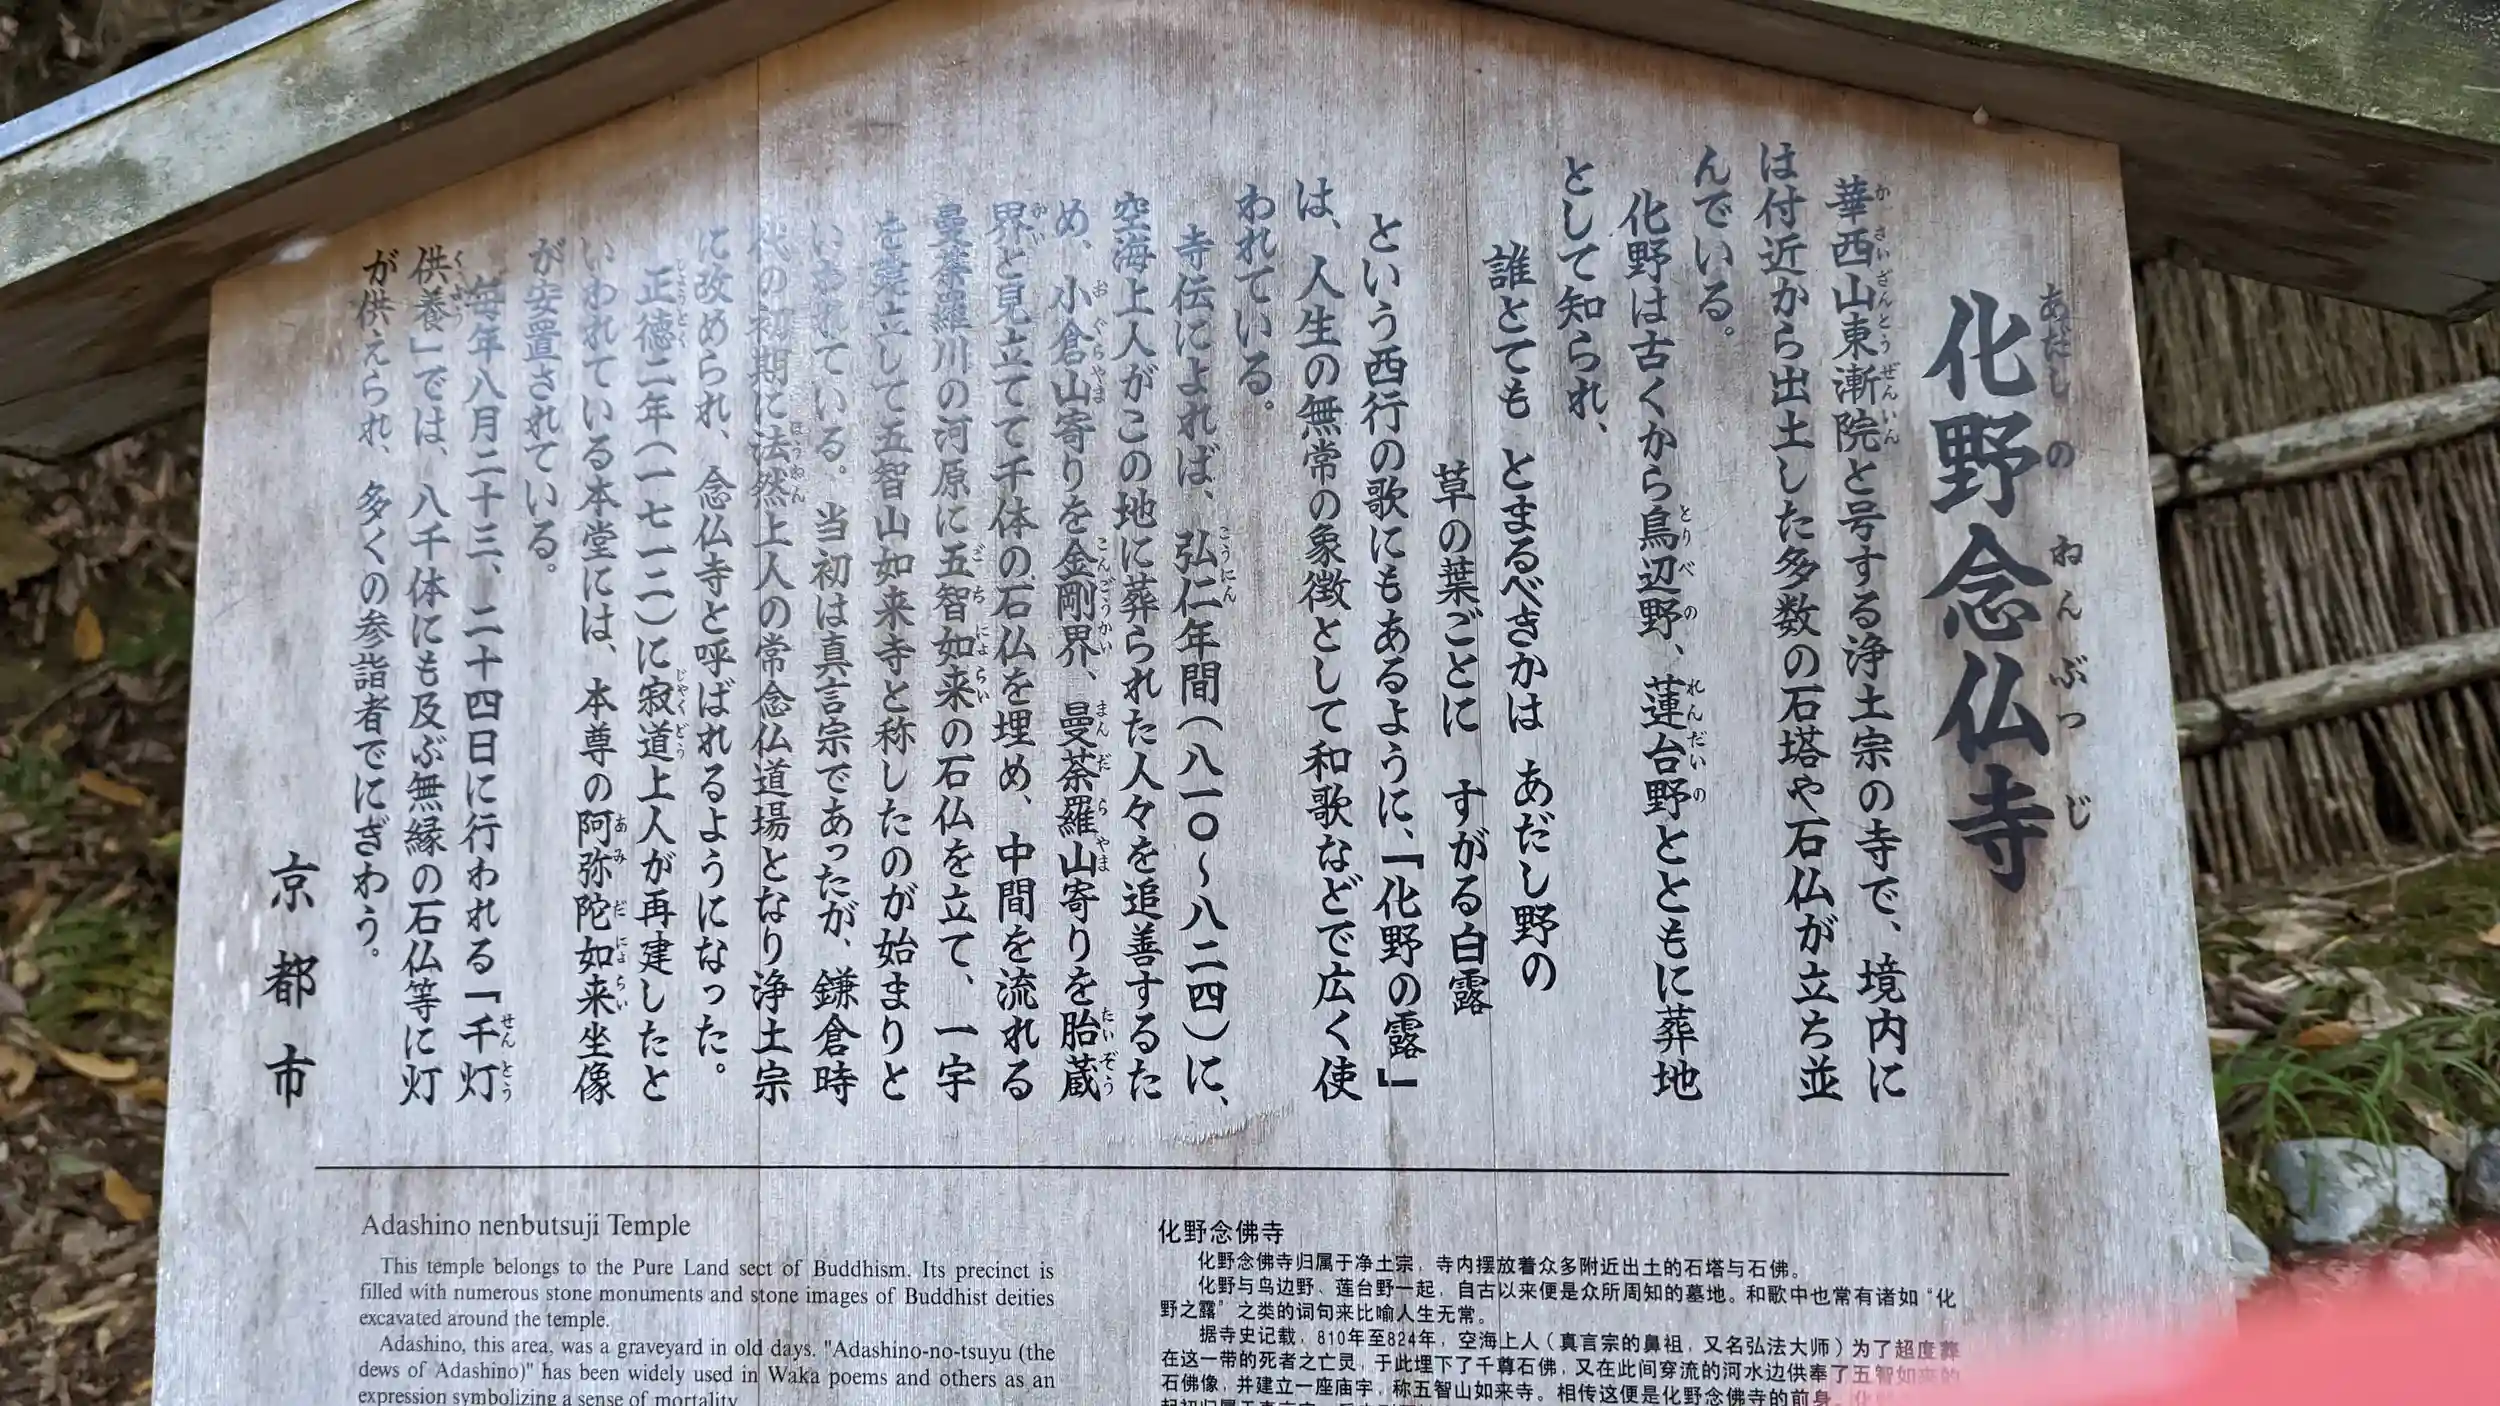 化野念仏寺
あだしのねんぶつじ
華西山東漸院と号する浄土宗の寺で、境内に
は付近から出土した多数の石塔や石仏が立ち並
んでいる。
化野は古くから鳥辺野、蓮台野とともに葬地
として知られ、
誰とても とまるべきかは あだし野の
草の葉ごとに すがる白露
という西行の歌にもあるように、「化野の露」
は、人生の無常の象徴として和歌などで広く使
われている。
寺伝によれば、弘仁年間(八一〇~八二四)に、
空海上人がこの地に葬られた人々を追善するた
め、小倉山寄りを金剛界、曼荼羅山寄りを胎蔵
界と見立てて千体の石仏を埋め、中間を流れる
曼荼羅川の河原に五智如来の石仏を立て、一宇
を建立して五智山如来寺と称したのが始まりと
いわれている。当初は真言宗であったが、鎌倉時
代の初期に法然上人の常念仏道場となり浄土宗
に改められ、念仏寺と呼ばれるようになった。
正徳二年(一七一二)に寂道上人が再建したと
いわれている本堂には、本尊の阿弥陀如来坐像
が安置されている。
毎年八月二十三、二十四日に行われる「千灯
供養」では、八千体にも及ぶ無縁の石仏等に灯
が供えられ、多くの参詣者でにぎわう。
京都市
Adashino nenbutsuji Temple
This temple belongs to the Pure Land sect of Buddhism. Its precinct is
filled with numerous stone monuments and stone images of Buddhist deities
excavated around the temple.
Adashino, this area, was a graveyard in old days. "Adashino-no-tsuyu (the
dews of Adashino)" has been widely used in Waka poems and others as an
expression symbolizing a sense of mortality.
化野念佛寺
化野念佛寺归属于净土宗，寺内摆放着众多附近出土的石塔与石佛。
化野与鸟边野、莲台野一起，自古以来便是众所周知的墓地。和歌中也常有诸如“化
野之露”之类的词句来比喻人生无常。
据寺史记载，810年至824年，空海上人（真言宗的鼻祖，又名弘法大师）为了超度葬
在这一带的死者之亡灵，于此埋下了千尊石佛，又在此间穿流的河水边供奉了五智如来的
石佛像，并建立一座庙宇，称五智山如来寺。相传这便是化野念佛寺的前身。